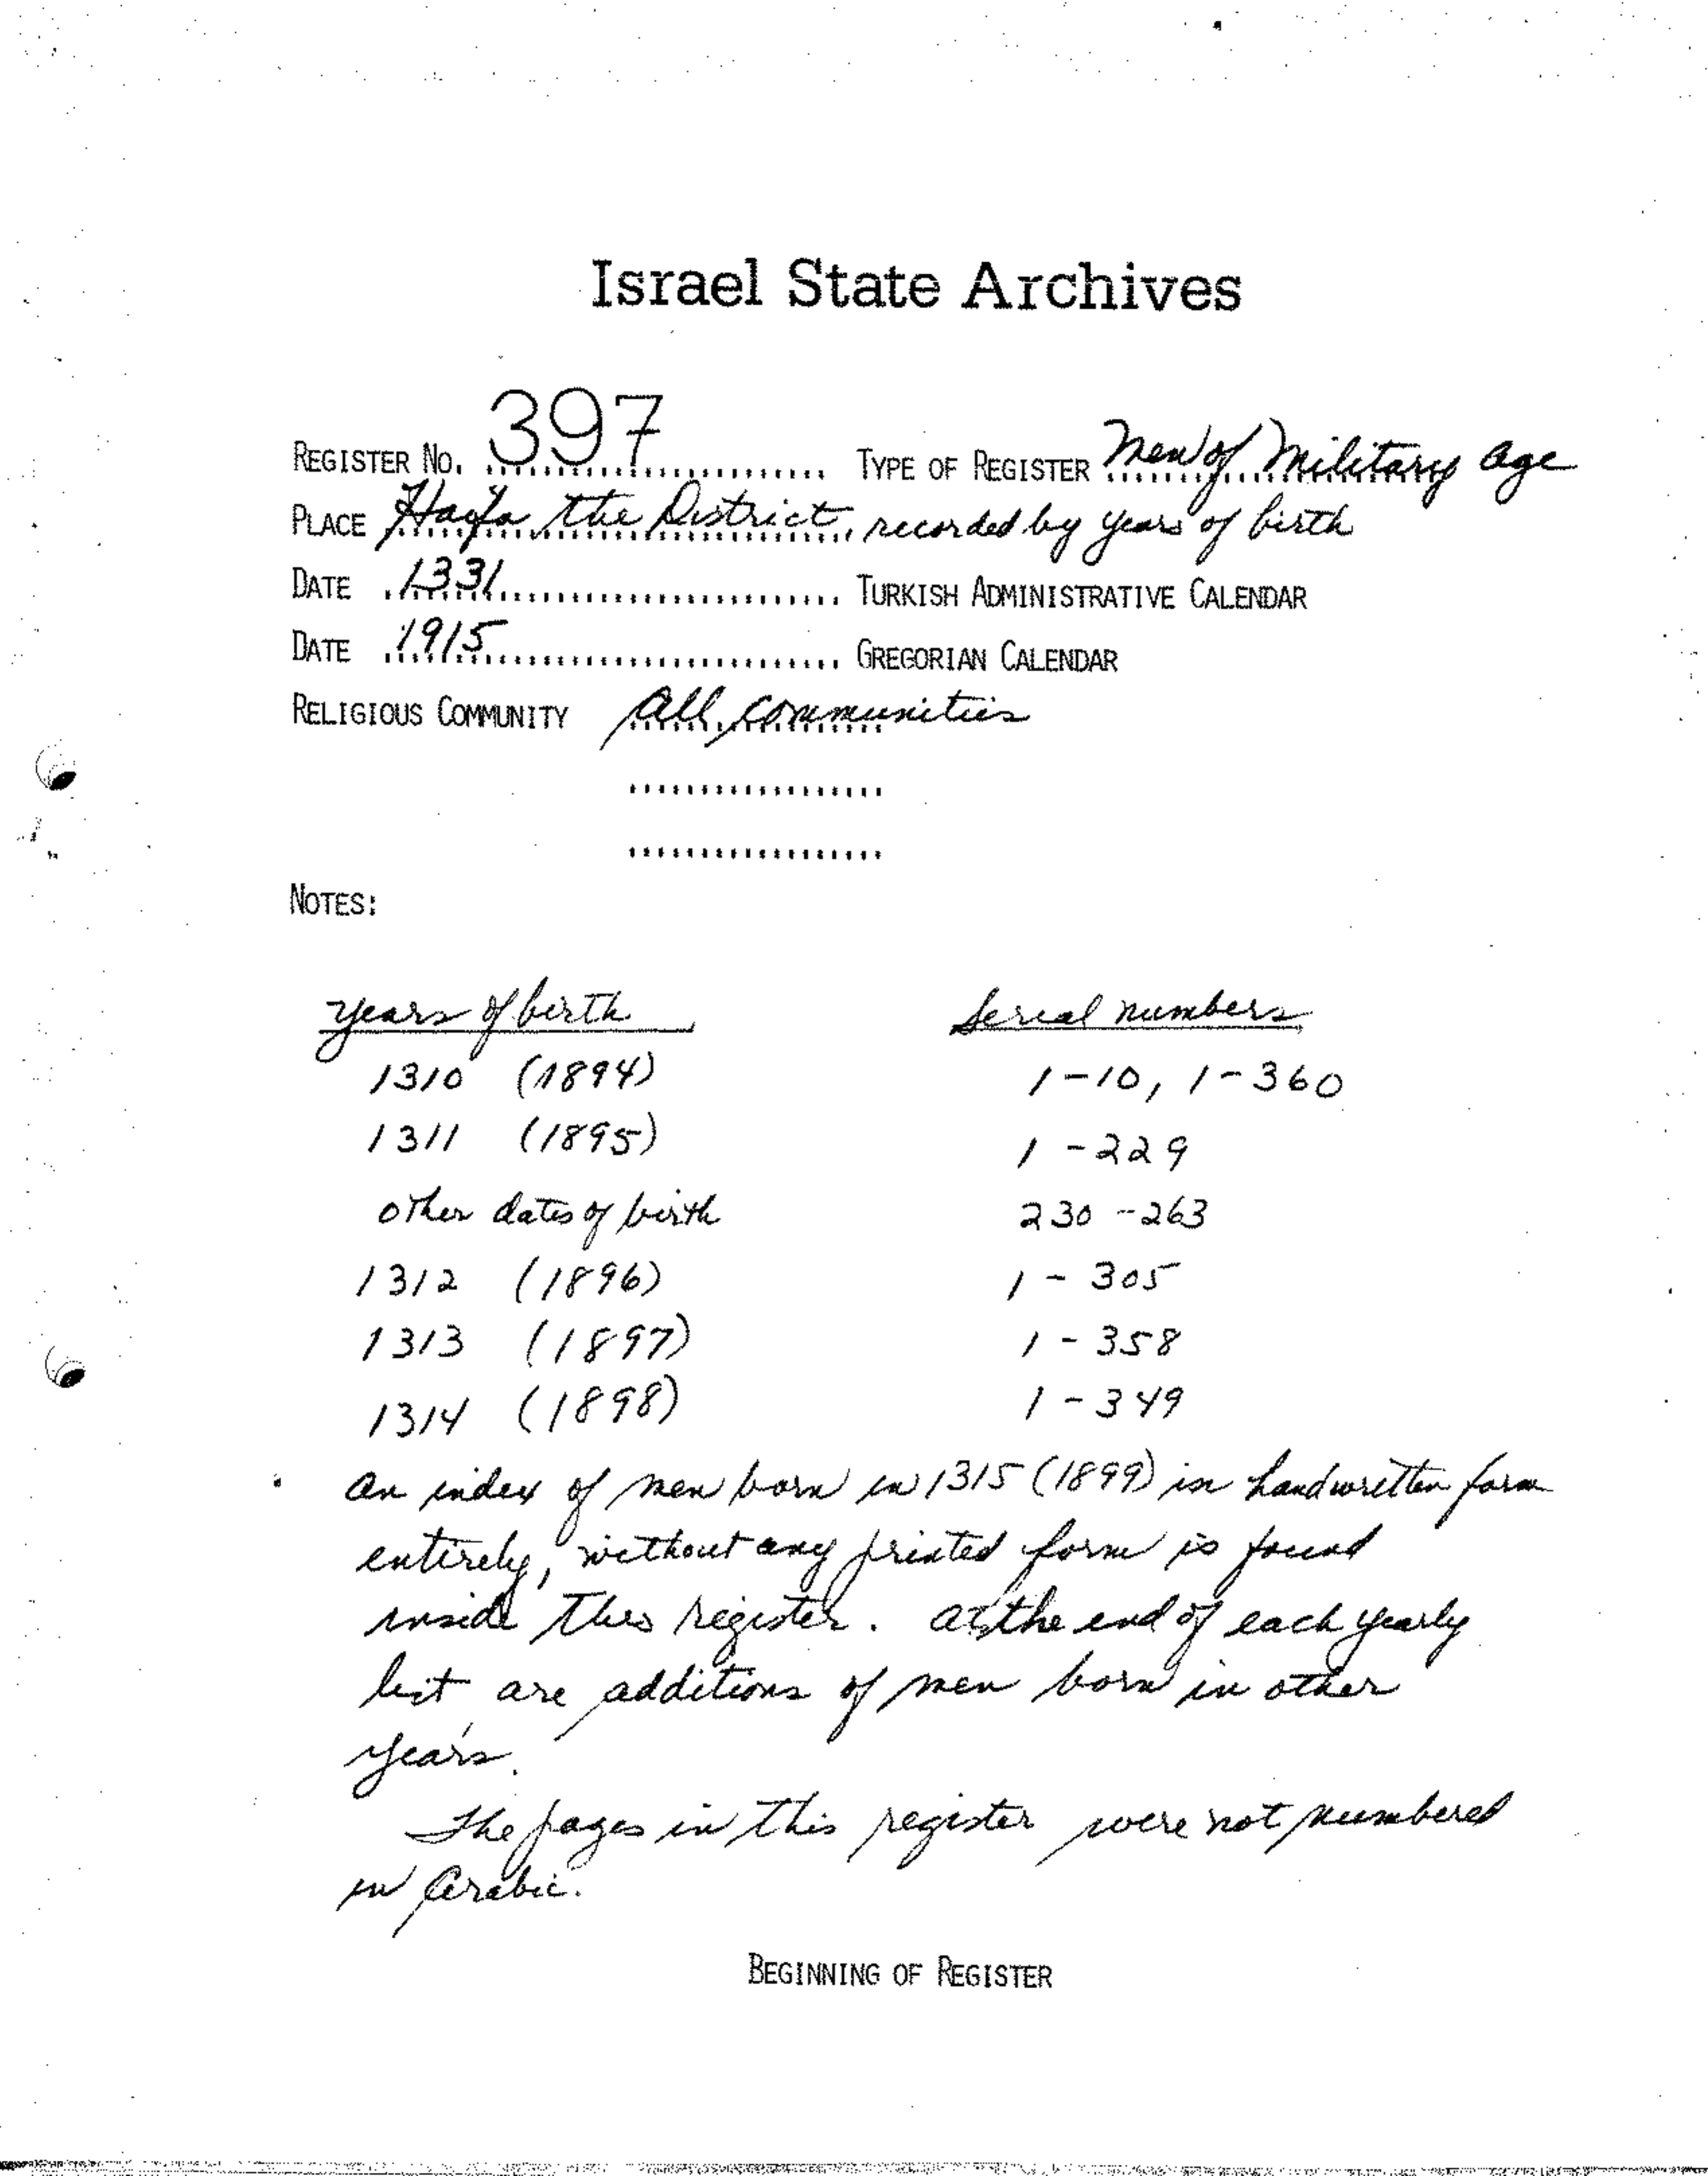 Israel State Archives
REGISTER NO. 397 TYPE OF REGISTER Men of Military age
PLACE Hayfa, the District, recorded by years of birth
DATE 1331 TURKISH ADMINISTRATIVE CALENDAR
DATE 1915 GREGORIAN CALENDAR
RELIGIOUS COMMUNITY All communities
NOTES:
years of birth Serial numbers
1310 (1894) 1-10, 1-360
1311 (1895) 1-229
other dates of birth 230-263
1312 (1896) 1-305
1313 (1897) 1-358
1314 (1898) 1-349
An index of men born in 1315 (1899) in handwritten form
entirely, without any printed form is found
inside this register. At the end of each yearly
list are additions of men born in other
years.
The pages in this register were not numbered
in Arabic.
BEGINNING OF REGISTER